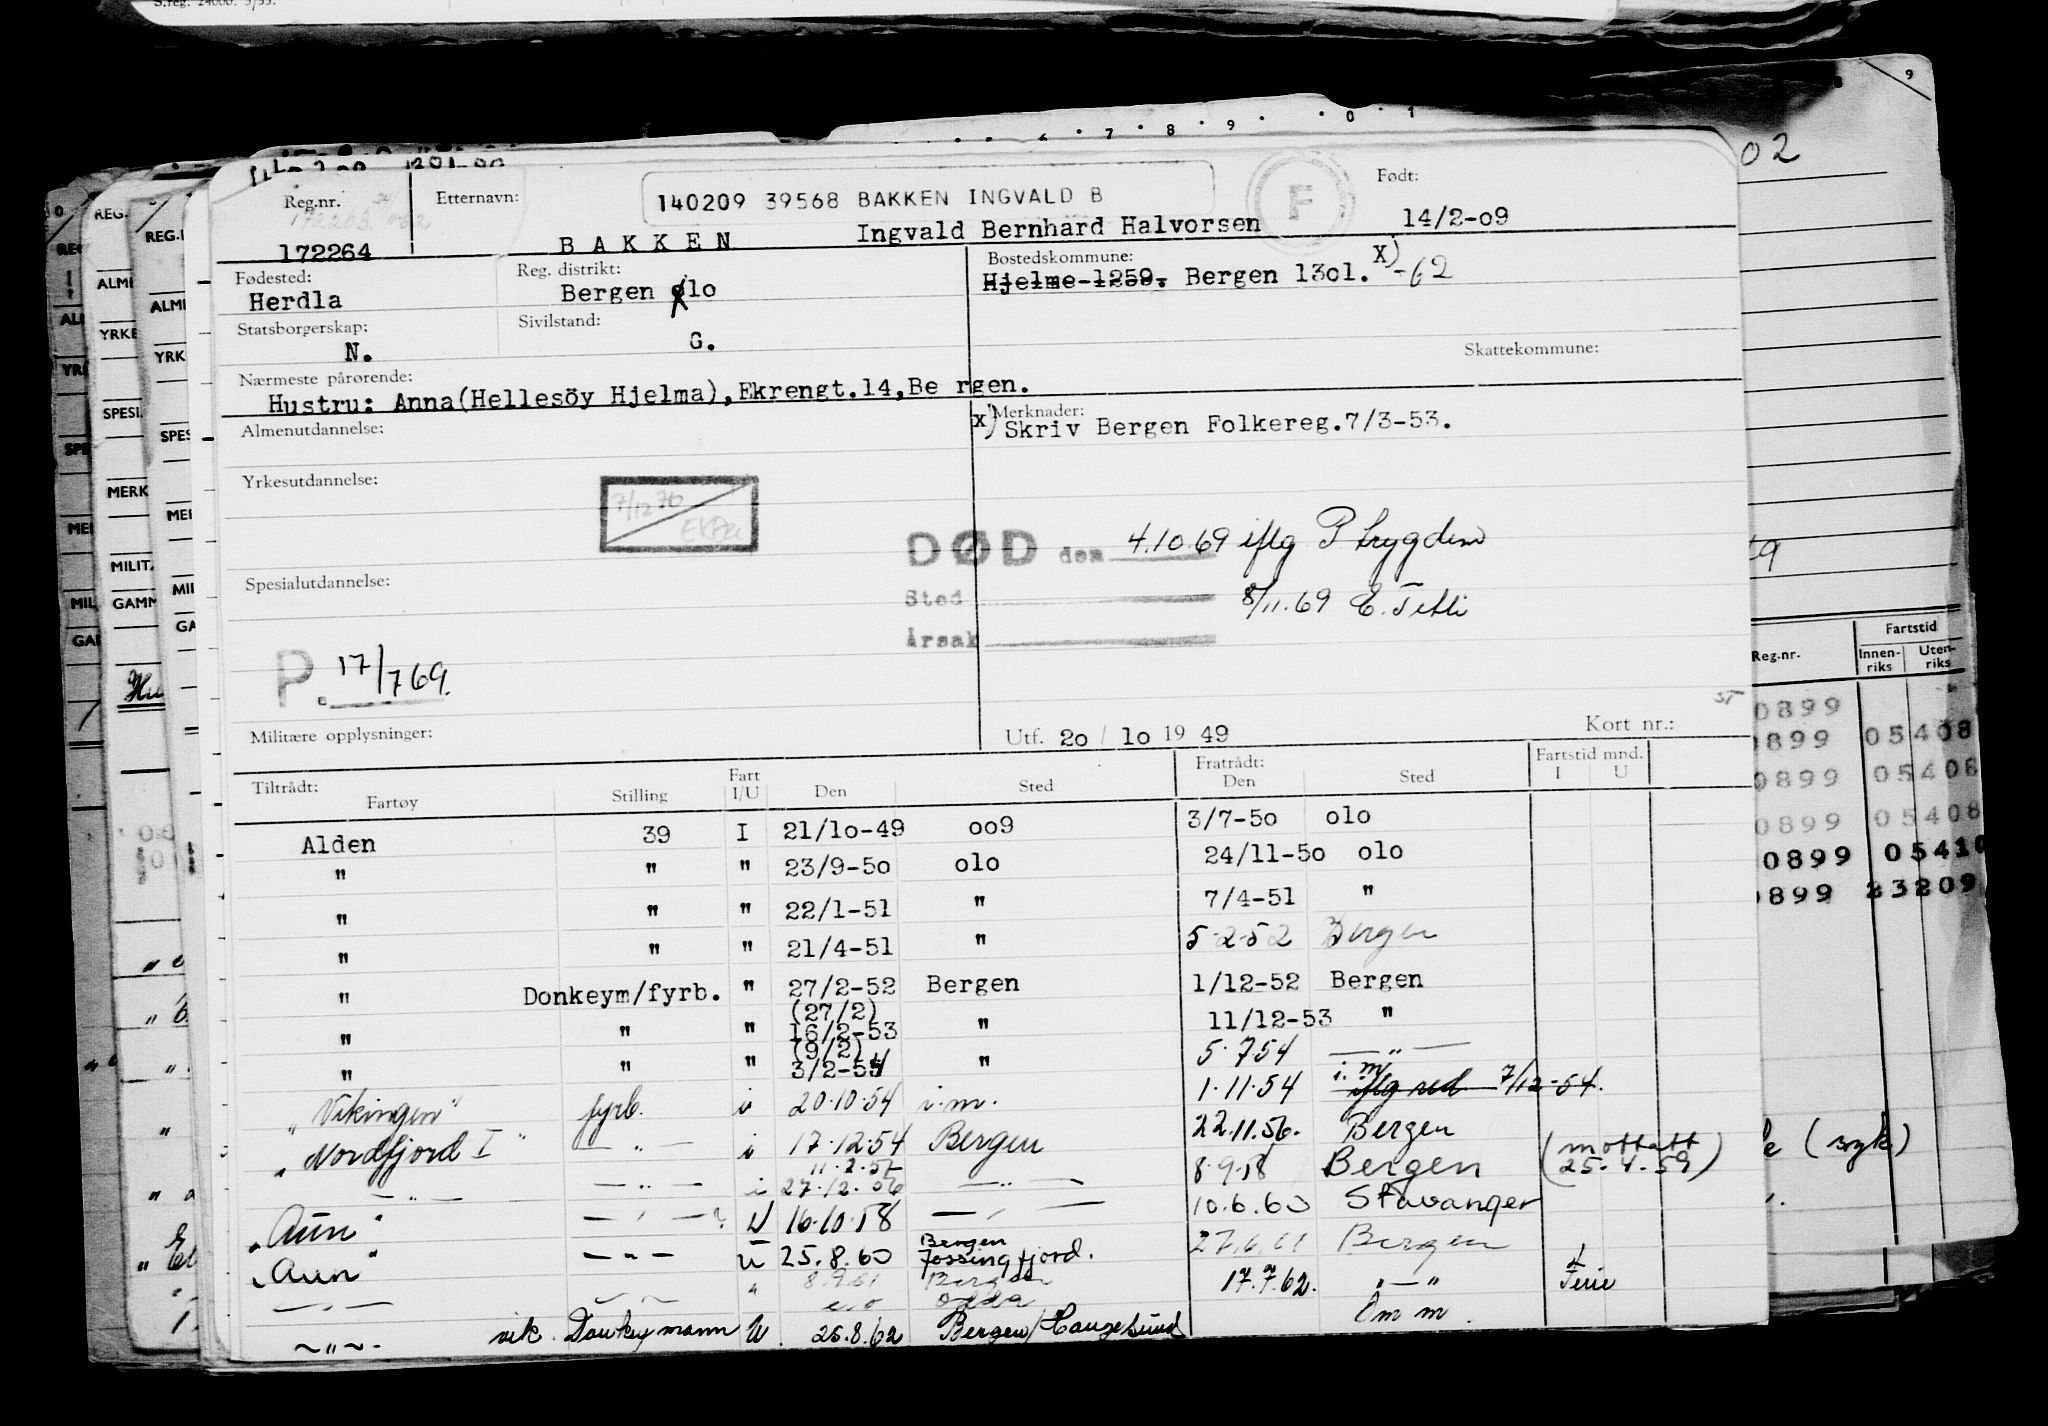 S.reg. 24000. 3/53.
140209 39568 BAKKEN INGVALD B
F
Reg.nr. Etternavn: Født:
172264 B A K K E N Ingvald Bernhard Halvorsen 14/2-o9
Fødested: Reg. distrikt: Bostedskommune:
Herdla Bergen olo Hjelme-1259. Bergen 13ol. X) -62
Statsborgerskap: Sivilstand: Skattekommune:
N. G.
Nærmeste pårørende:
Hustru: Anna(Hellesöy Hjelma),Ekrengt.14,Be rgen.
Almenutdannelse: Merknader:
x) Skriv Bergen Folkereg.7/3-53.
Yrkesutdannelse:
7/12 76
DØD den 4.10.69 iflg P trygden
Spesialutdannelse: Sted 8/11.69
Årsak
P. 17/7 69.
Militære opplysninger: Utf. 2o / 1o 19 49 Kort nr.:
Tiltrådt: Fart Fratrådt: Fartstid mnd.
Fartøy Stilling I/U Den Sted Den Sted I U
Alden 39 I 21/1o-49 oo9 3/7-5o olo
" " " 23/9-5o olo 24/11-5o olo
" " " 22/1-51 " 7/4-51 "
" " " 21/4-51 " 5-2-52 Bergen
" Donkeym/fyrb. " 27/2-52 Bergen 1/12-52 Bergen
(27/2)
" " " 16/2-53 " 11/12-53 "
(9/2)
" " " 3/2-54 " 5.7 54 — " —
"Vikingen" fyrb. i 20.10.54 i.m. 1.11.54 i. m. iflg red 7/12-54.
"Nordfjord I" — " — i 17.12.54 Bergen 22.11.56. Bergen
— " — — " — i 27.12.56 — " — 8.9.58 Bergen (mottatt 25.4.59)
"Aun" — " — U 16.10.58 — " — 10.6.60 Stavanger
"Aun" — " — U 25.8.60 Bergen Jøssingfjord. 27.6.61 Bergen
— " — — " — " 8.9.61 Bergen Odda 17.7.62. " — " Ferie
— " — vik. Donkeymann U. 25.8.62 Bergen/Haugesund Om m.
02
Fartstid
Reg.nr. Innenriks Utenriks
0899
0899 05408
0899 05408
0899 05408
0899 05410
0899 23209
(syk)